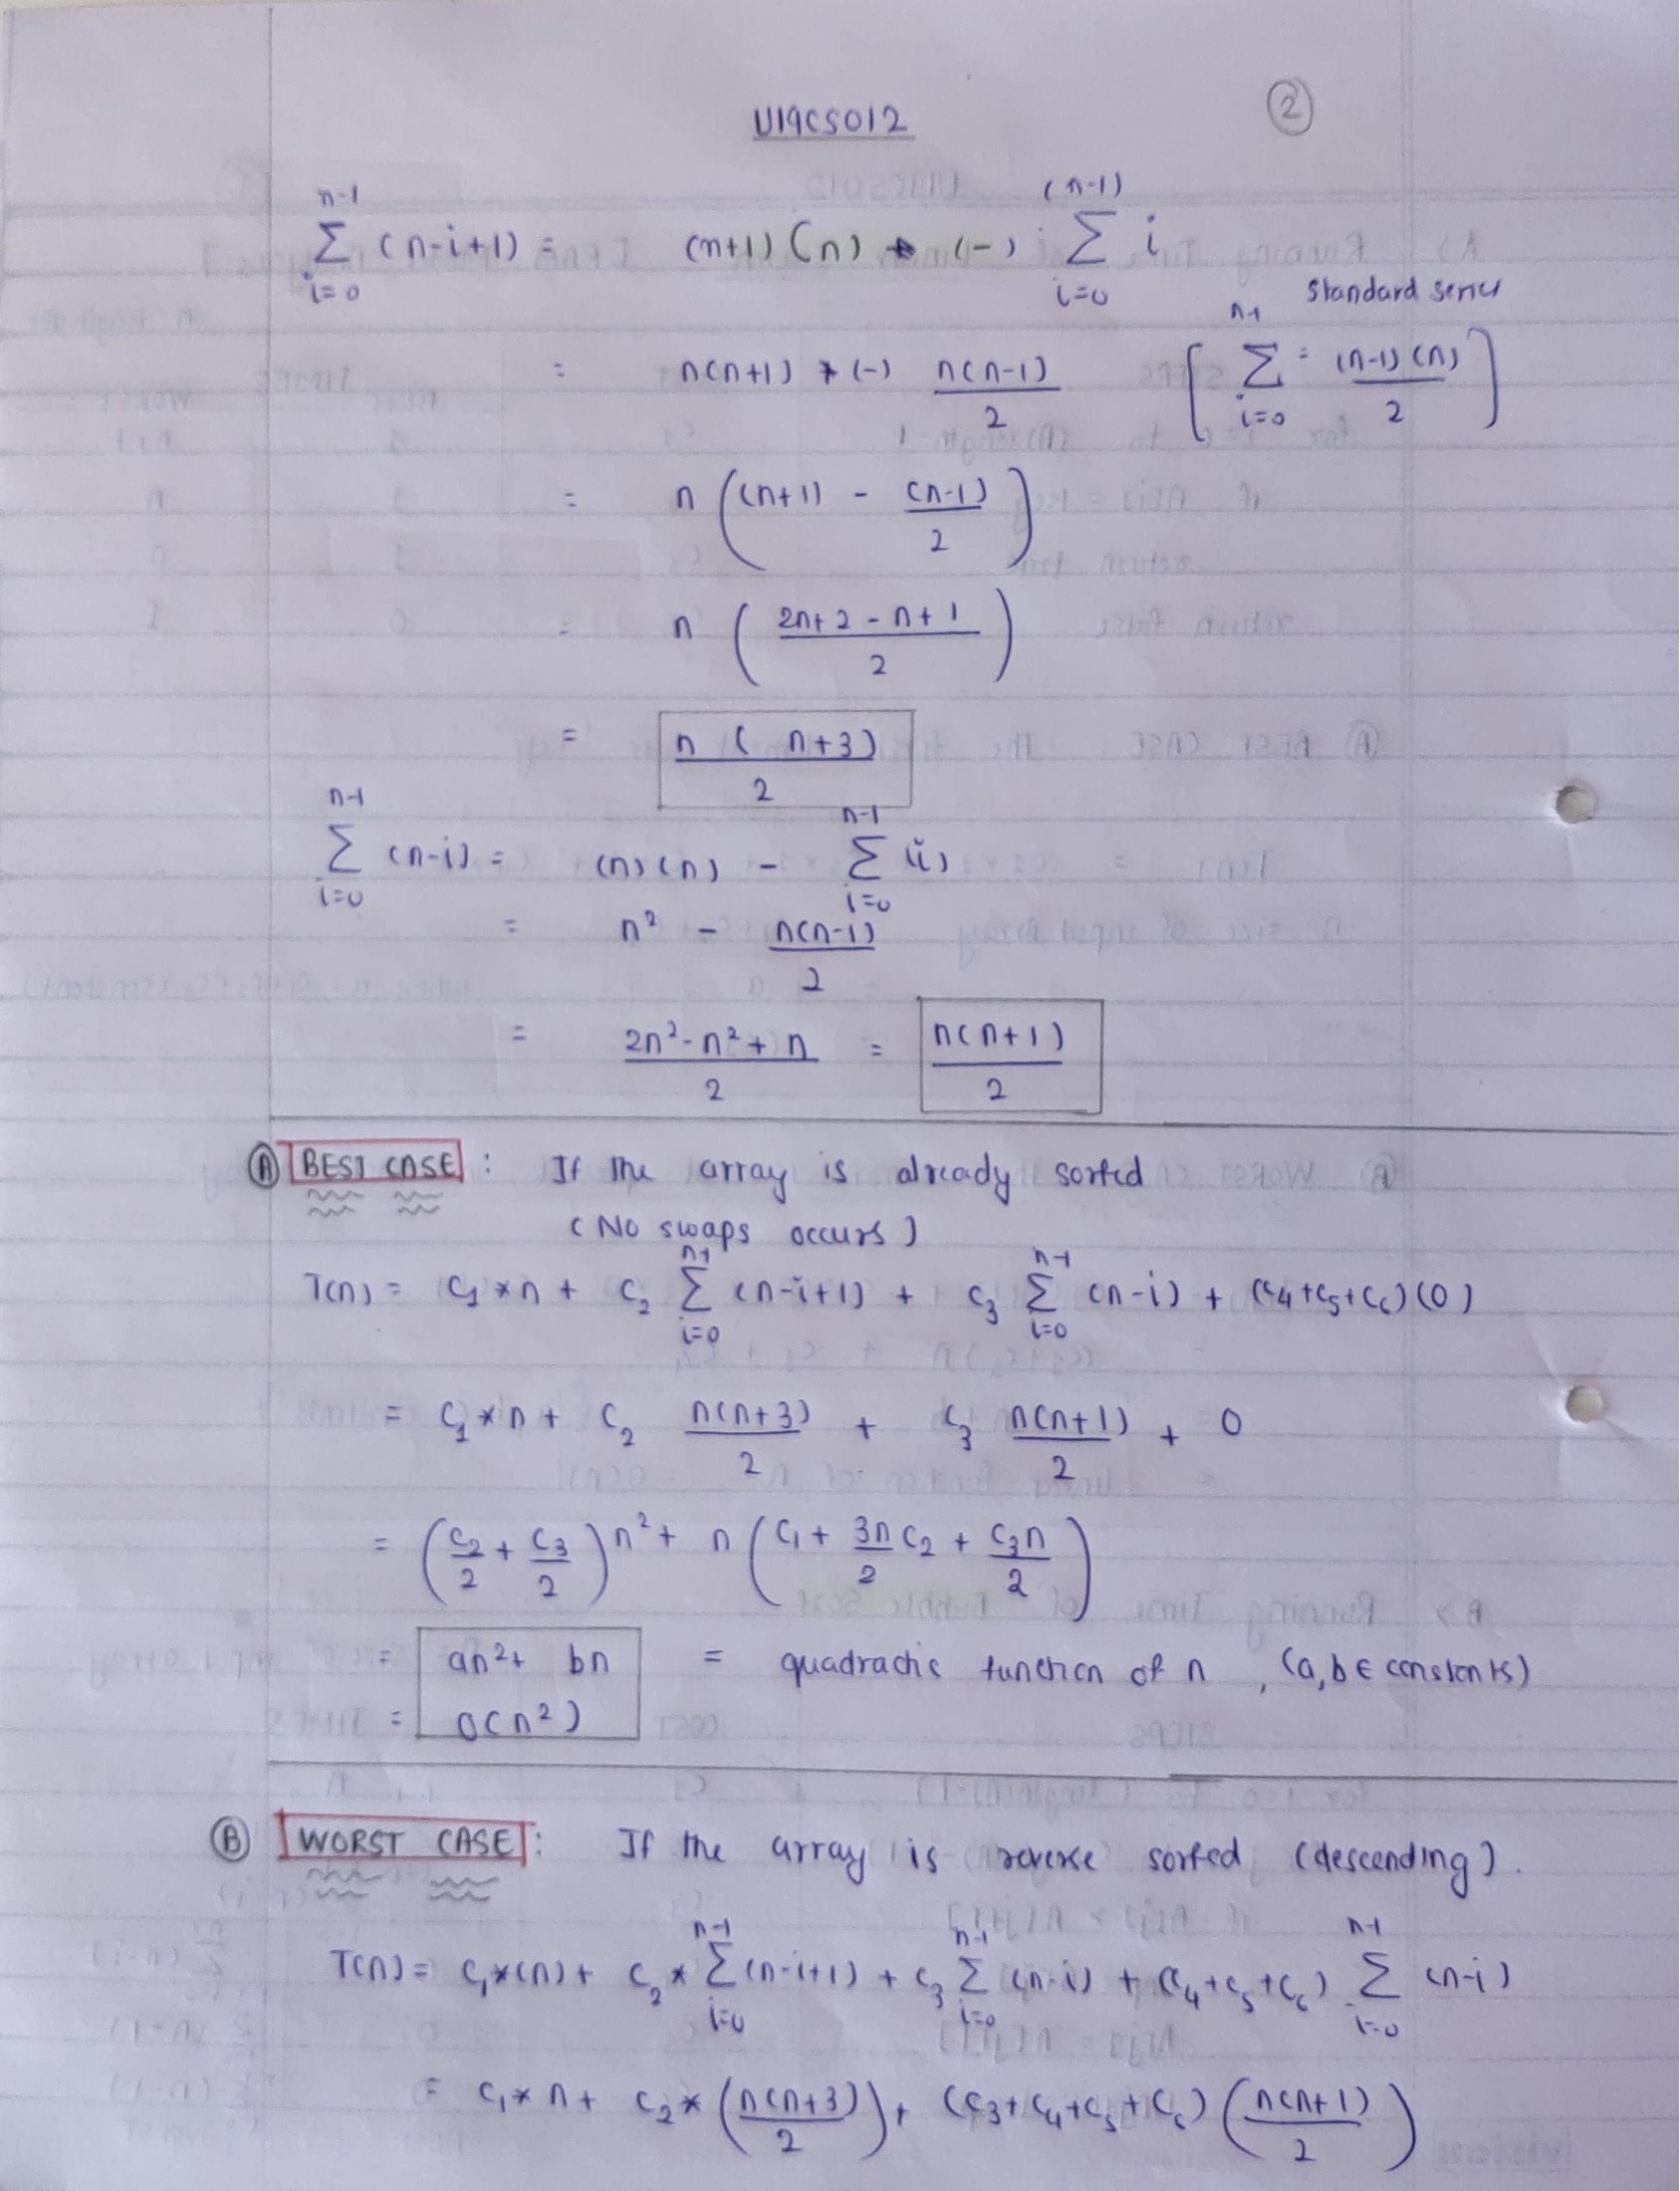 U19CS012
2
n-1 (n-1)
Σ (n-i+1) = (n+1)(n) + (-) Σ i
i=0 i=0
n-1 Standard series
= n(n+1) + (-) n(n-1)/2 [ Σ = (n-1)(n)/2 ]
i=0
= n ( (n+1) - (n-1)/2 )
= n ( (2n+2-n+1)/2 )
= n(n+3)/2
n-1 n-1
Σ (n-i) = (n)(n) - Σ (i)
i=0 i=0
= n² - n(n-1)/2
= (2n²-n²+n)/2 = n(n+1)/2
Ⓐ BEST CASE : If the array is already sorted
(No swaps occurs)
n-1 n-1
T(n) = C1*n + C2 Σ (n-i+1) + C3 Σ (n-i) + (C4+C5+C6)(0)
i=0 i=0
= C1*n + C2 n(n+3)/2 + C3 n(n+1)/2 + 0
= (C2/2 + C3/2)n² + n(C1 + 3n/2 C2 + C3n/2)
= an²+ bn = quadratic function of n , (a,b ∈ constants)
= O(n²)
Ⓑ WORST CASE : If the array is reverse sorted (descending).
n-1 n-1 n-1
T(n) = C1*(n) + C2* Σ (n-i+1) + C3 Σ (n-i) + (C4+C5+C6) Σ (n-i)
i=0 i=0 i=0
= C1*n + C2*(n(n+3)/2) + (C3+C4+C5+C6)(n(n+1)/2)